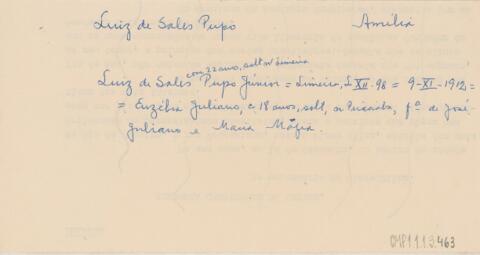 Luiz de Sales Pupo Amélia
com 22 anos, solt nº Limeira
Luiz de Sales Pupo Júnior = Limeira, L XII - 98 = 9 - XI - 1912, =
= Euzébia Juliano, c 18 anos, solt, n fª de José
Juliano e Maria
CMP1.1.13.463